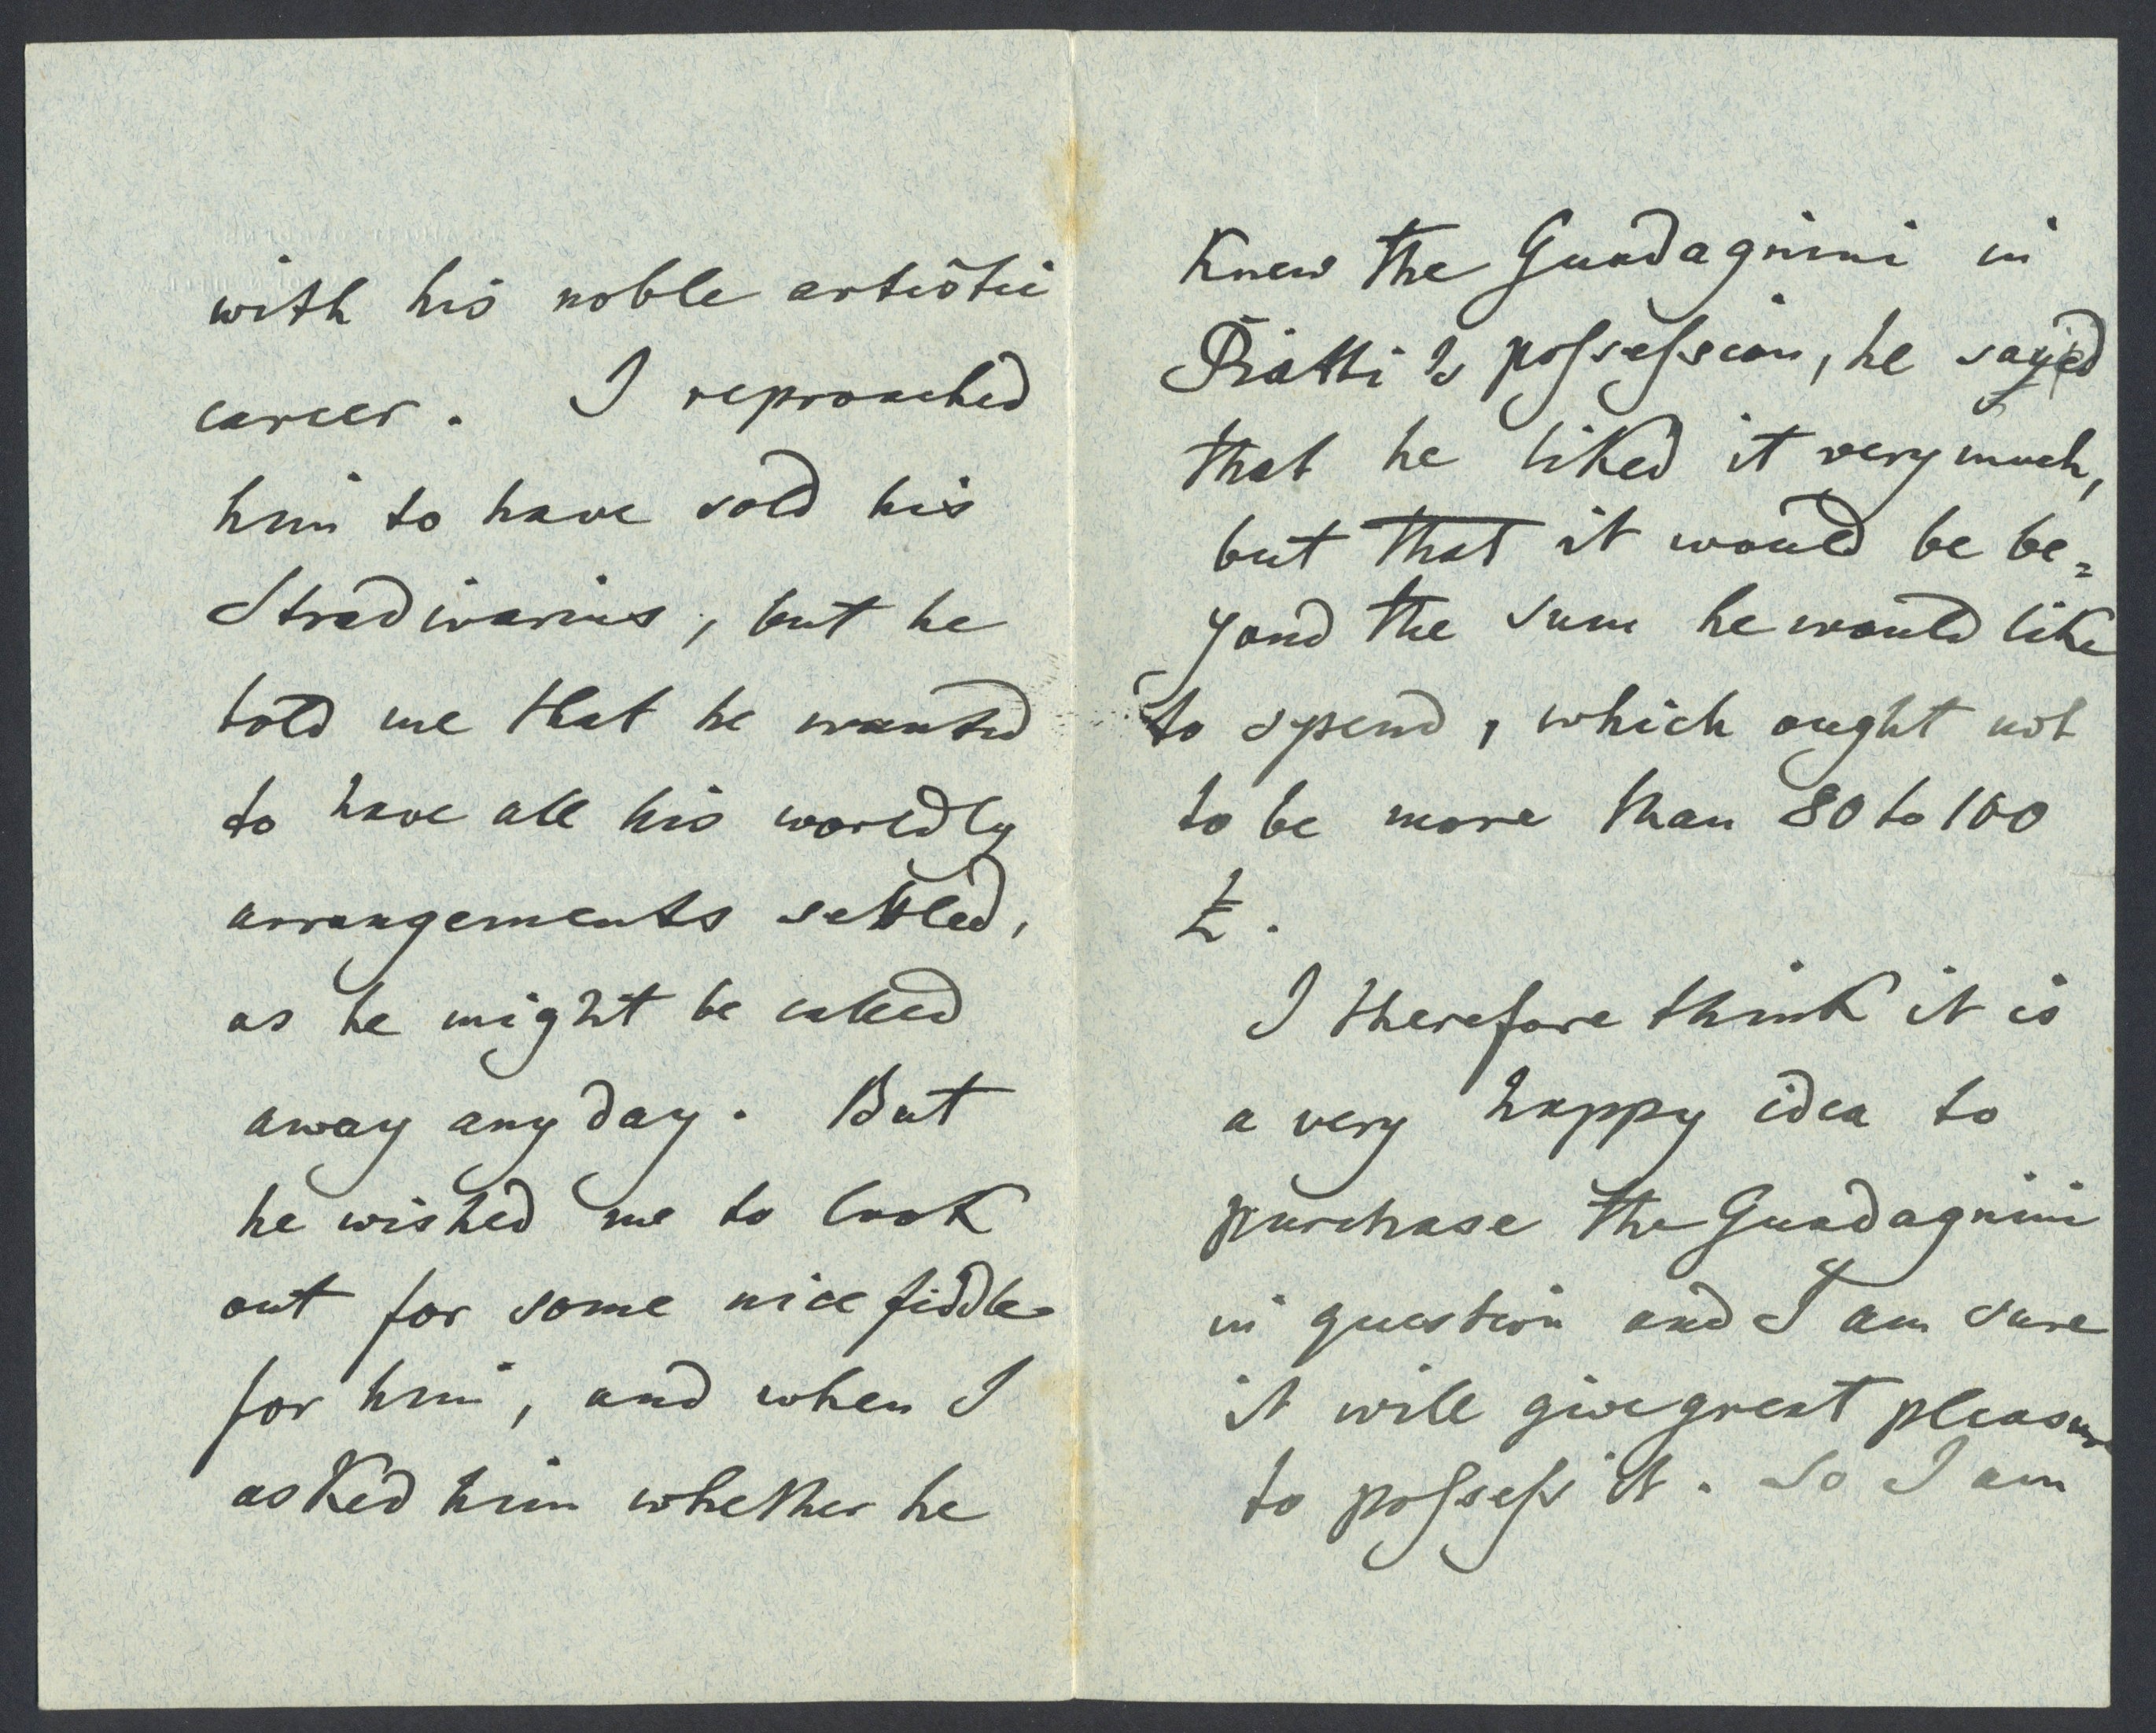 with his noble artistic
career. I reproached
him to have sold his
Stradivarius, but he
told me that he wanted
to have all his worldly
arrangements settled,
as he might be called
away any day. But
he wished me to look
out for some nice fiddle
for him, and when I
asked him whether he
Knew the Guadagnini in
Piatti's possession, he sayed
that he liked it very much,
but that it would be be=
yond the sum he would like
to spend, which ought not
to be more than 80 to 100
£.
I therefore think it is
a very happy idea to
purchase the Guadagnini
in question and I am sure
it will give great pleasure
to possess it. So I am